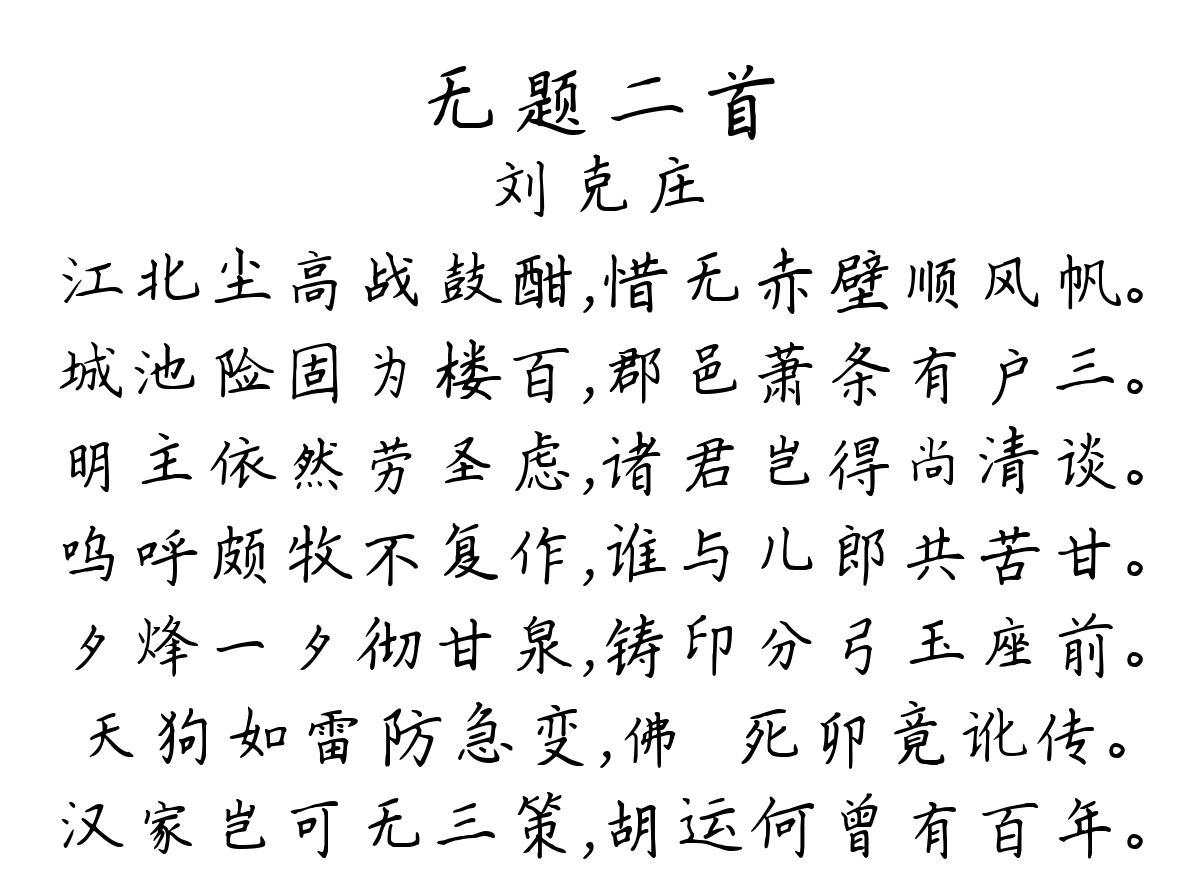 无题二首
刘克庄
江北尘高战鼓酣,惜无赤壁顺风帆。
城池险固为楼百,郡邑萧条有户三。
明主依然劳圣虑,诸君岂得尚清谈。
呜呼颇牧不复作,谁与儿郎共苦甘。
夕烽一夕彻甘泉,铸印分弓玉座前。
天狗如雷防急变,佛 死卯竟讹传。
汉家岂可无三策,胡运何曾有百年。